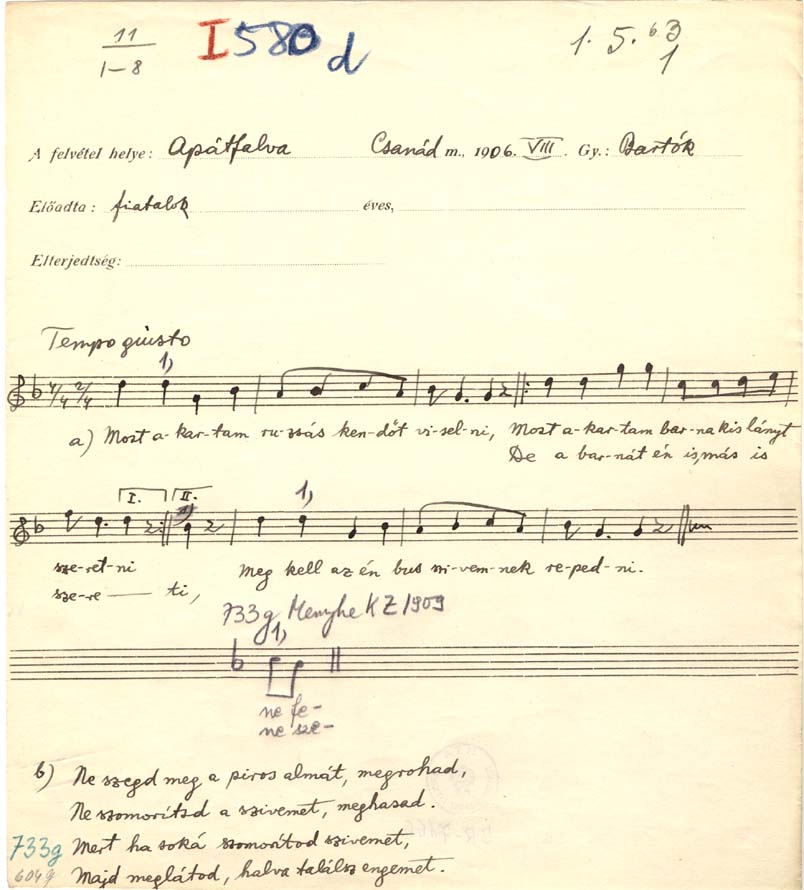 11
I–8
I 580 d
1. 5. 6. 3
1
A felvétel helye: Apátfalva Csanád m., 1906. VIII. Gy.: Bartók
Előadta: fiatalok éves,
Elterjedtség:
Tempo giusto
1)
4/4 2/4
a) Mozt a-kar-tam ru-zsás ken-dőt vi-sel-ni, Mozt a-kar-tam bar-na kis lányt
De a bar-nát én is, más is
I. II. 1)
sze-ret-ni Meg kell az én bus szi-vem-nek re-ped-ni.
sze-re — ti,
733g Menyhe KZ 1909
1)
ne fe-
ne sze-
b) Ne szegd meg a piros almát, megrohad,
Ne szomorítsd a szivemet, meghasad.
733g Mert ha soká szomorítod szivemet,
604g Majd meglátod, halva találsz engemet.